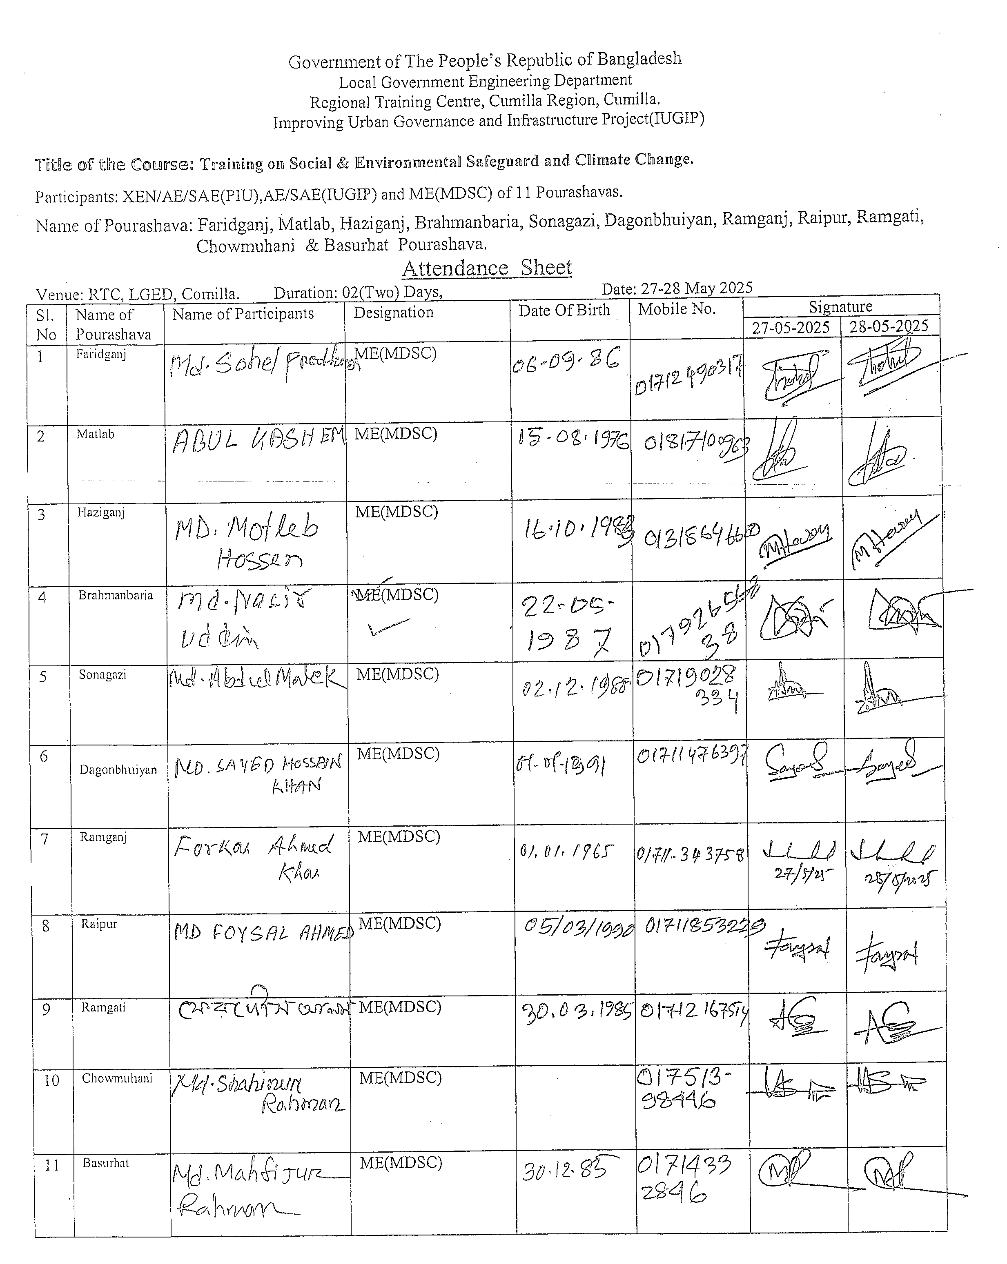 Government of The People's Republic of Bangladesh
Local Government Engineering Department
Regional Training Centre, Cumilla Region, Cumilla.
Improving Urban Governance and Infrastructure Project(IUGIP)
Title of the Course: Training on Social & Environmental Safeguard and Climate Change.
Participants: XEN/AE/SAE(PIU),AE/SAE(IUGIP) and ME(MDSC) of 11 Pourashavas.
Name of Pourashava: Faridganj, Matlab, Haziganj, Brahmanbaria, Sonagazi, Dagonbhuiyan, Ramganj, Raipur, Ramgati,
Chowmuhani & Basurhat Pourashava.
Attendance Sheet
Venue: RTC, LGED, Comilla. Duration: 02(Two) Days, Date: 27-28 May 2025
Sl. No Name of Pourashava Name of Participants Designation Date Of Birth Mobile No. Signature
27-05-2025 28-05-2025
1 Faridganj Md. Sohel ME(MDSC) 06-09-86 01712490317
2 Matlab ABUL KASHEM ME(MDSC) 15-08-1976 01817100963
3 Haziganj MD. Motleb ME(MDSC) 16-10-1983
Hossen
4 Brahmanbaria Md. Nasir ME(MDSC) 22-05-
Uddin 1987 38
5 Sonagazi Md. Abdul Malek ME(MDSC) 02.12.1988 01719028
334
6 Dagonbhuiyan MD. SAYED HOSSAIN ME(MDSC) 01711476397 Sayed Sayed
KHAN
7 Ramganj Forkan Ahmed ME(MDSC) 01.01.1965 01711-343758
Khan 27/5/25 28/5/2025
8 Raipur MD FOYSAL AHMED ME(MDSC) 05/03/1990 01711853229 Foysal Foysal
9 Ramgati ME(MDSC) 30.03.1985
10 Chowmuhani Md. Shahinur ME(MDSC) 017513-
Rahman 98446
11 Basurhat Md. Mahfijur ME(MDSC) 30-12-85 0171433
Rahman 2846